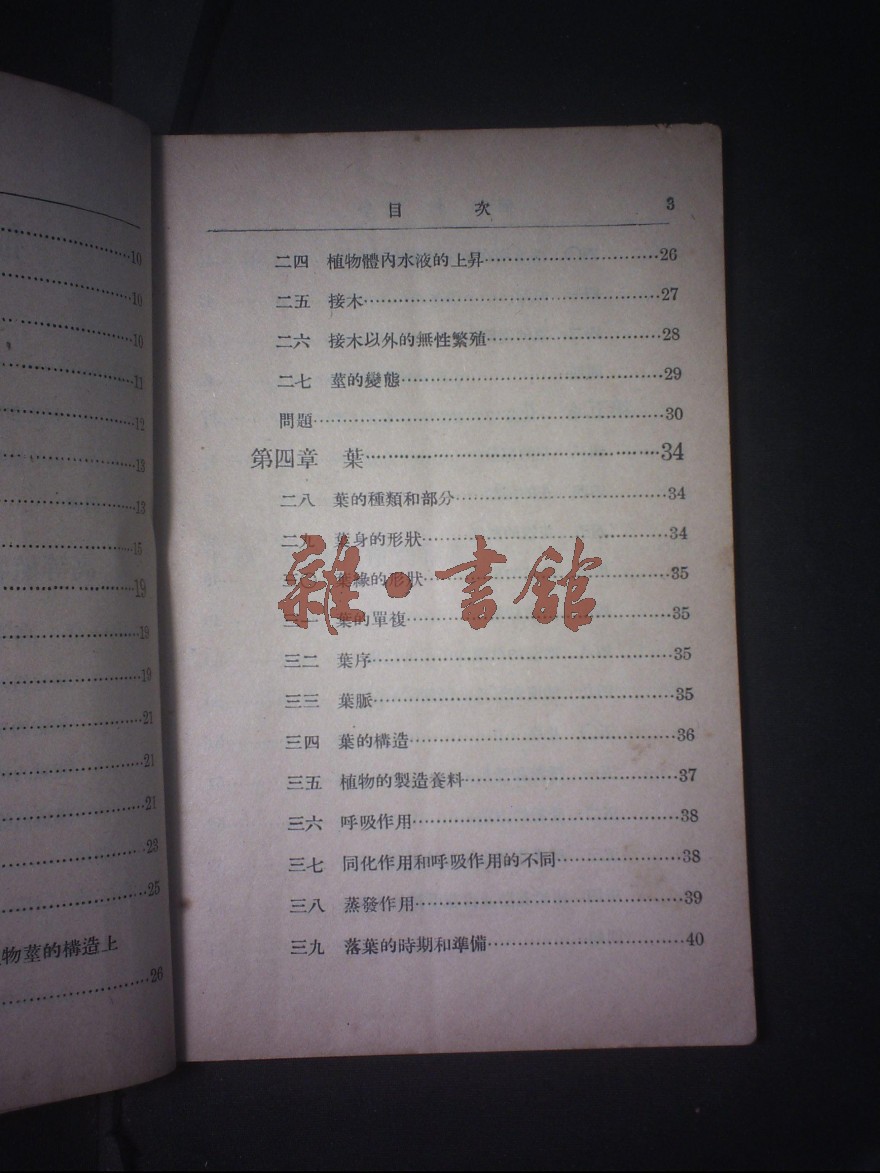 10
10
10
11
12
13
13
15
19
19
19
21
21
21
23
25
物莖的構造上
26
目 次 3
二四 植物體內水液的上昇…………26
二五 接木…………27
二六 接木以外的無性繁殖…………28
二七 莖的變態…………29
問題…………30
第四章 葉…………34
二八 葉的種類和部分…………34
二九 葉身的形狀…………34
三〇 葉緣的形狀…………35
三一 葉的單複…………35
三二 葉序…………35
三三 葉脈…………35
三四 葉的構造…………36
三五 植物的製造養料…………37
三六 呼吸作用…………38
三七 同化作用和呼吸作用的不同…………38
三八 蒸發作用…………39
三九 落葉的時期和準備…………40
雜·書館